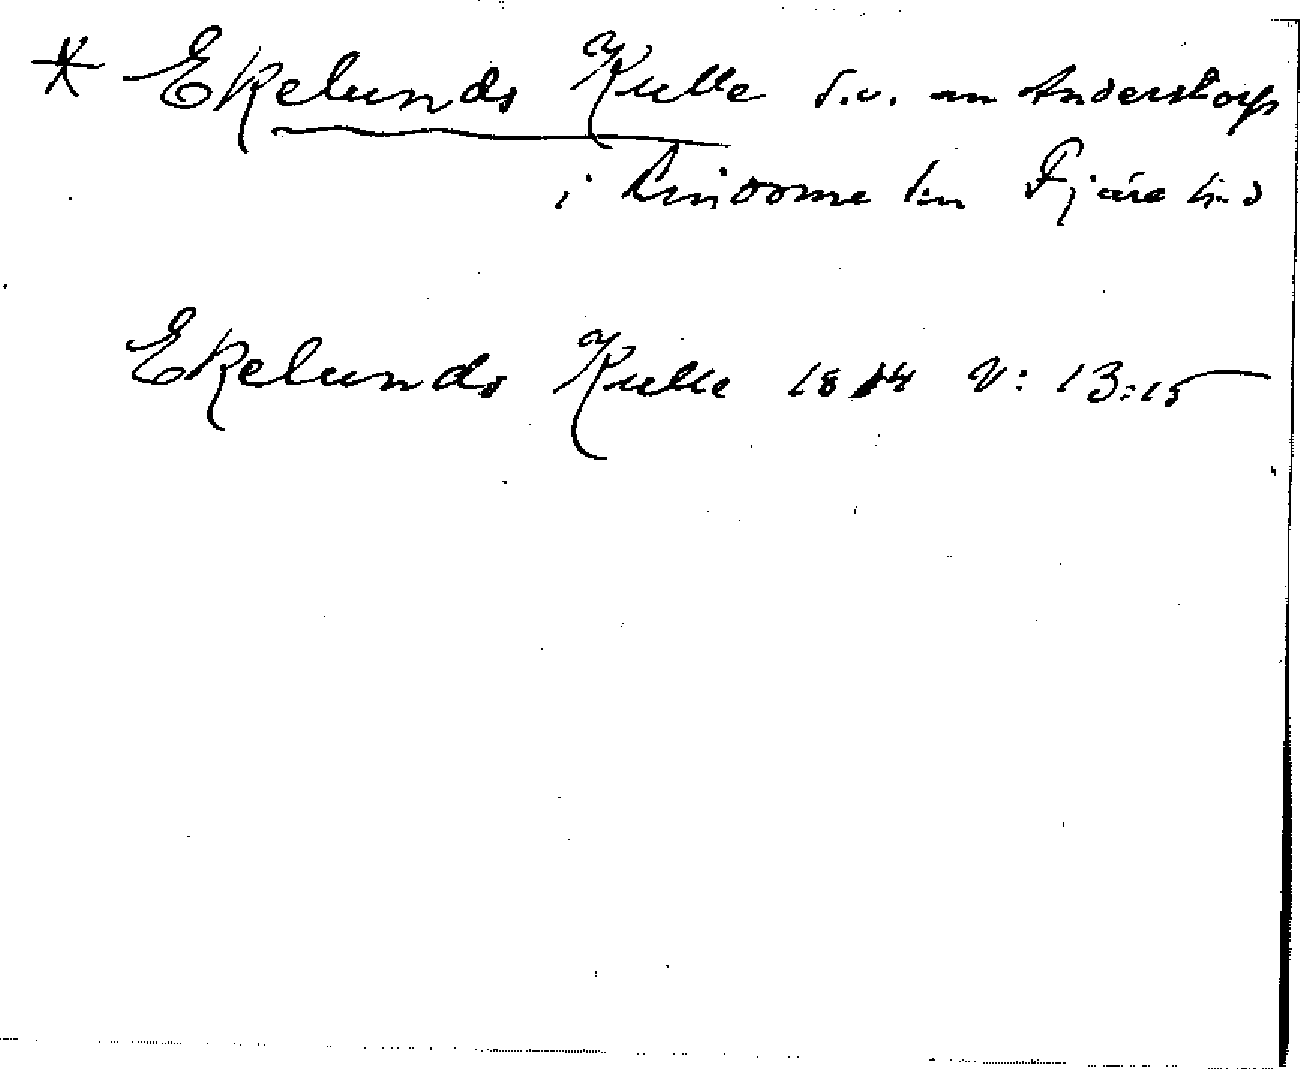 * Ekelunds Kulle s.v. om Anderstorp
i Lindome sn Fjäre hd
Ekelunds Kulle 1814 V: 13:15